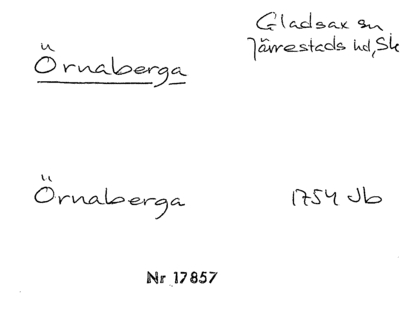 Örnaberga
Gladsax sn
Järrestads hd, Sk
Örnaberga
1754 Jb
Nr 17857